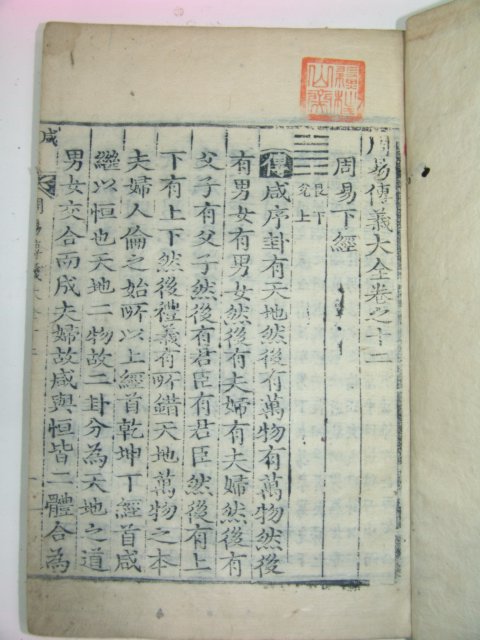 周易傳義大全卷之十二
周易下經
艮下
兌上
傳咸序卦有天地然後有萬物有萬物然後
有男女有男女然後有夫婦有夫婦然後有
父子有父子然後有君臣有君臣然後有上
下有上下然後禮義有所錯天地萬物之本
夫婦人倫之始所以上經首乾坤下經首咸
繼以恒也天地二物故二卦分為天地之道
男女交合而成夫婦故咸與恒皆二體合為
咸